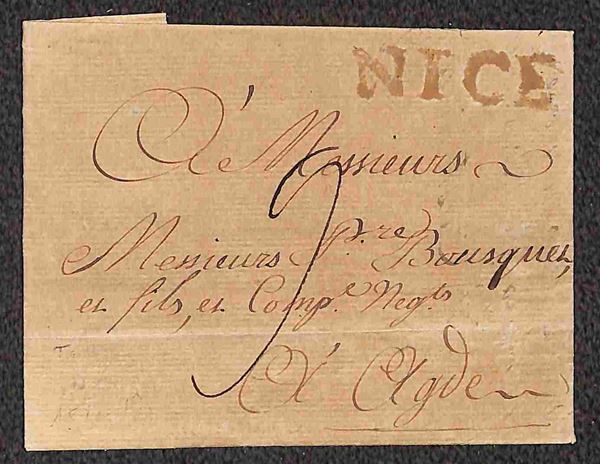 NICE
À Messieurs
Messieurs P.re Bousquet,
et fils, et Comp.e Neg.ts
À Agde